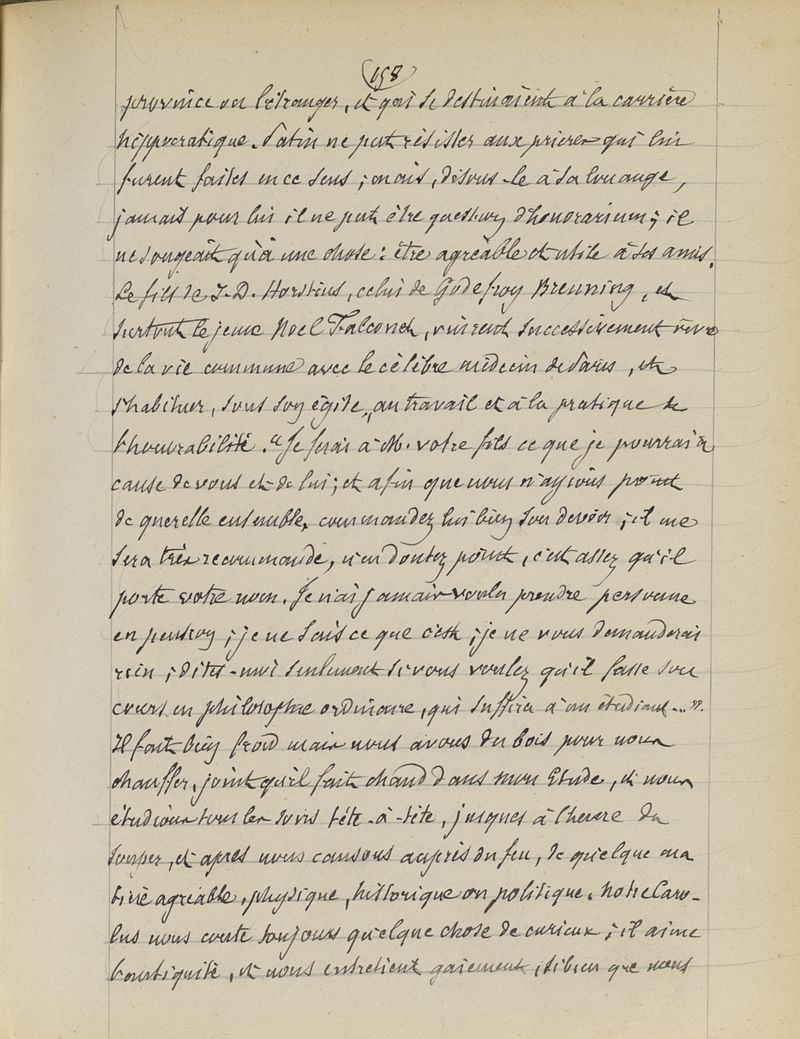 158
province ou l'étranger, et qui se destinaient à la carrière
hippocratique. Patin ne put résister aux prières qui lui
furent faites en ce sens ; mais, disons-le à sa louange,
jamais pour lui il ne put être question d'honorarium ; il
ne songeait qu'à une chose : être agréable et utile à ses amis.
Le fils de J. D. Horstius, celui de Godefroy Breuning, et
surtout le jeune Noel Falconet, vinrent successivement vivre
de la vie commune avec le célèbre médecin de Paris, et
s'habituer, sous son égide, au travail et à la pratique de
l'honorabilité. "Je ferai à M. votre fils ce que je pourrai à
cause de vous et de lui ; et afin que nous n'ayions point
de querelle ensemble, commandez lui bien son devoir ; il me
sera très recommandé, n'en doutez point, c'est assez qu'il
porte votre nom. Je n'ai jamais voulu prendre personne
en pension ; je ne sais ce que c'est ; je ne vous demanderai
rien ; dites-moi seulement si vous voulez qu'il fasse son
cours en philosophie ordinaire, qui suffira à un étudiant..."
Il fait bien froid mais nous avons du bois pour nous
chauffer, joint qu'il fait chaud dans mon Etude, et nous
étudions tous les soirs tête-à-tête, jusques à l'heure du
souper, et après nous causons auprès du feu, de quelque ma
tière agréable, physique, historique ou politique. Notre Caro-
lus nous conte toujours quelque chose de curieux ; il aime
l'antiquité, et nous entretient gaiement, si bien que nous